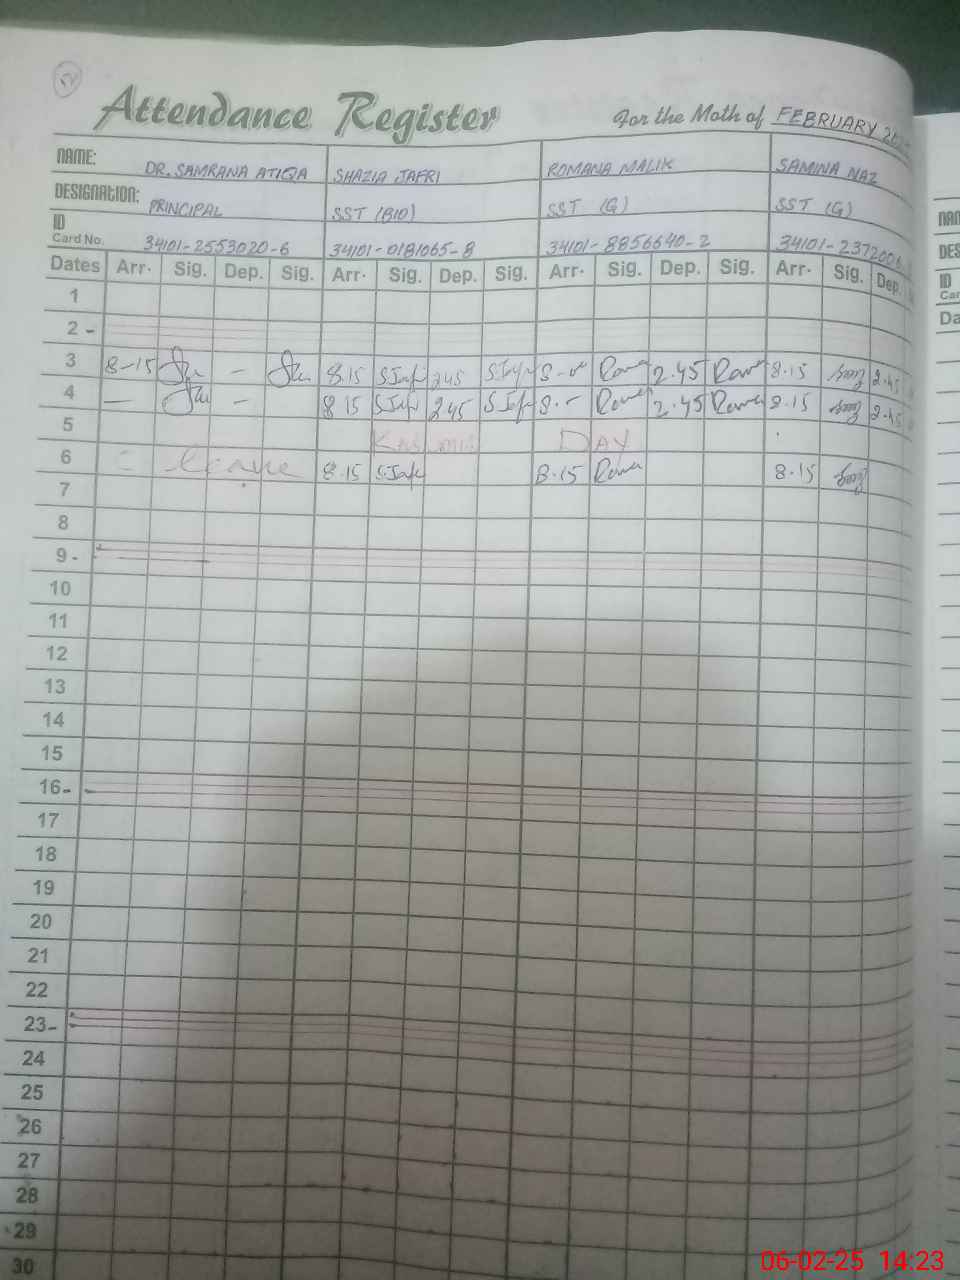 Attendance Register For the Moth of FEBRUARY
NAME: DR. SAMRANA ATIQA SHAZIA JAFRI ROMANA MALIK SAMINA NAZ
DESIGNATION: PRINCIPAL SST (BIO) SST (G) SST (G)
ID
Card No. 34101-2553020-6 34101-0181065-8 34101-8856640-2 34101-2372006
Dates Arr. Sig. Dep. Sig. Arr. Sig. Dep. Sig. Arr. Sig. Dep. Sig. Arr. Sig. Dep.
1
2 -
3 8-15 - 8.15 S.Jafri 2.45 S.Jafri 2.45 8.15 2.45
4 — - 8 15 S.Jafri 2.45 S.Jafri 2.45 8.15 2.45
5 KASHMIR DAY
6 leave 8.15 S.Jafri 8.15 8.15
7
8
9 -
10
11
12
13
14
15
16-
17
18
19
20
21
22
23-
24
25
26
27
28
29
30
NAM
DES
ID
Car
Da
06-02-25 14:23